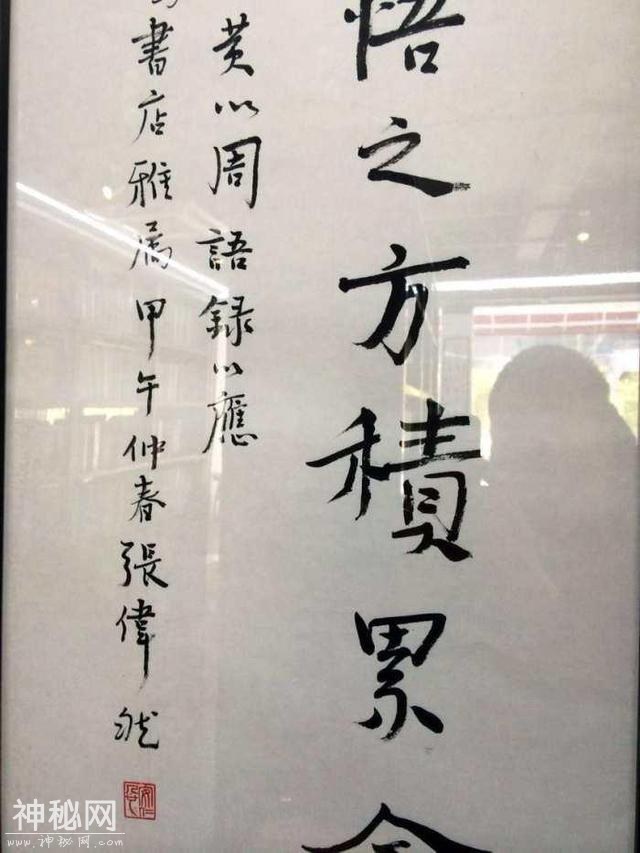 悟之方積累
黄以周語録以應
書店雅屬甲午仲春張偉然
神秘网
www.神秘网.com